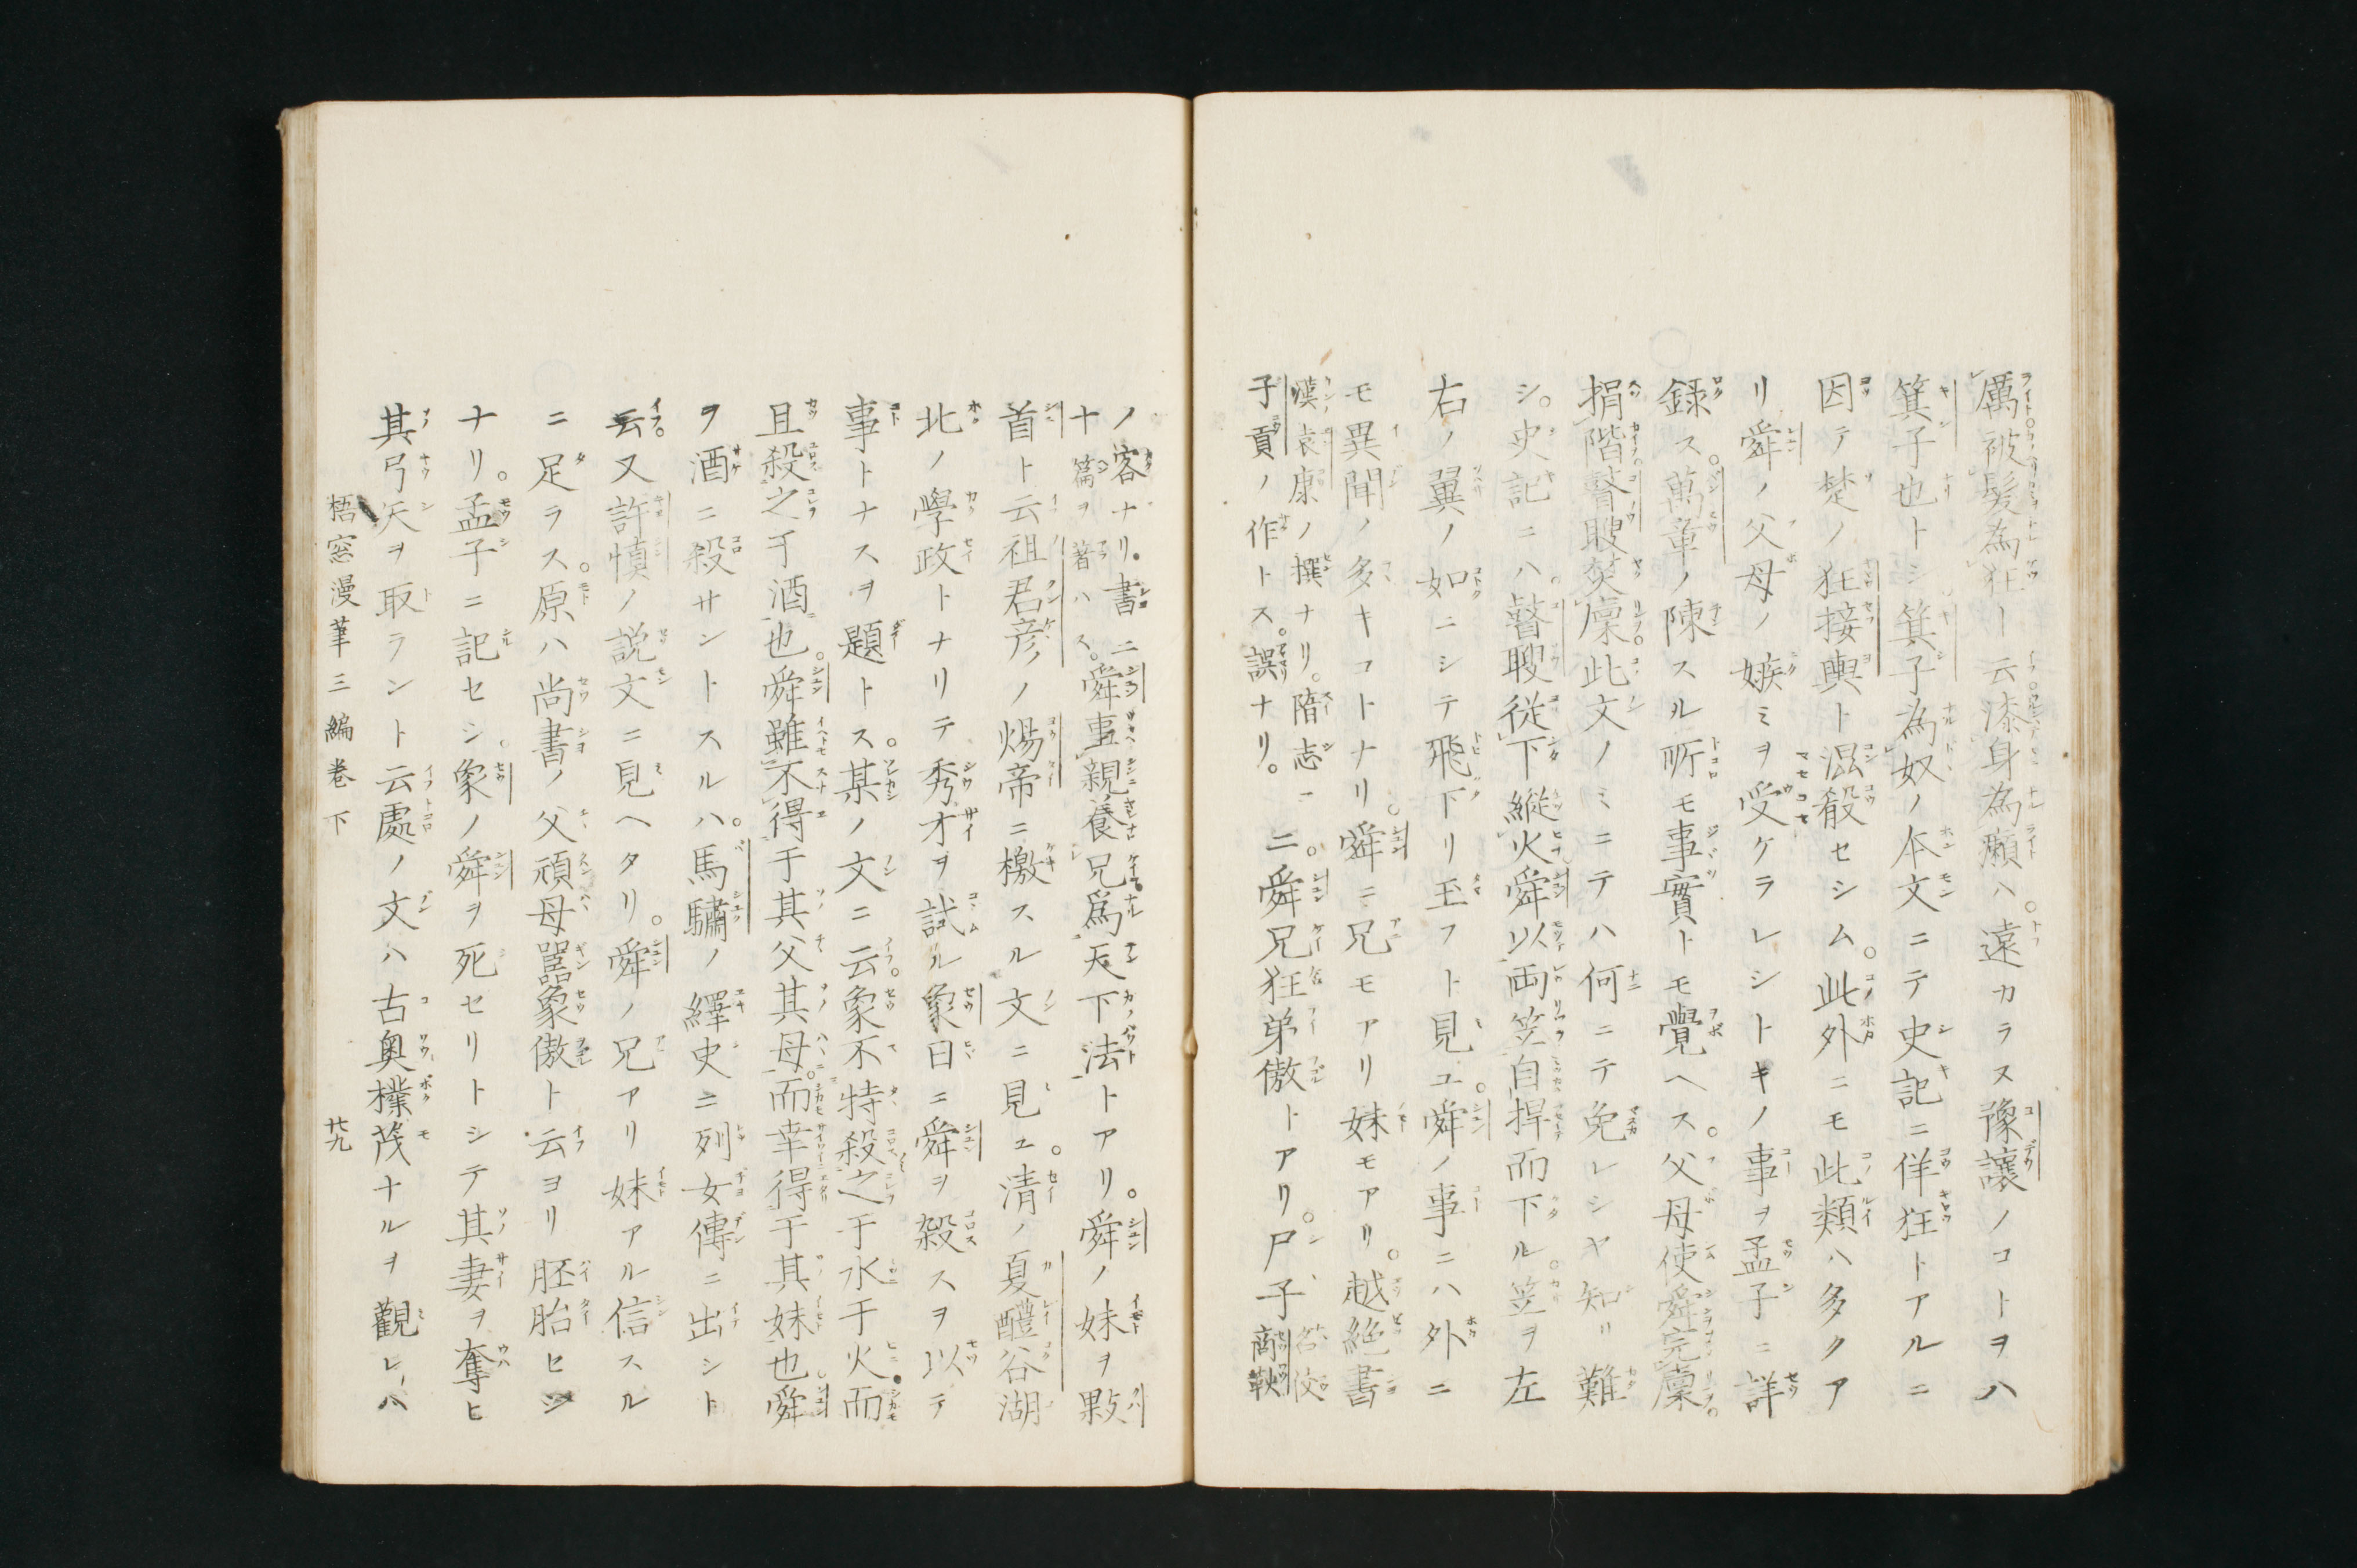 厲被髮為狂ー云漆身為癩ハ。遠カラス豫讓ノコトヲハ
箕子也トシ箕子為奴ノ本文ニテ史記ニ佯狂トアルニ
因テ楚ノ狂接輿ト混殽セシム。此外ニモ此類ハ多クア
リ舜ノ父母ノ嫉ミヲ受ケラレシトキノ事ヲ孟子ニ詳
録ス。萬章ノ陳スル所モ事實トモ覺ヘス。父母使舜完廩
捐階瞽瞍焚廩。此文ノミニテハ何ニテ免レシヤ知リ難
シ。史記ニハ瞽瞍從下縱火舜以両笠自捍而下ル。笠ヲ左
右ノ翼ノ如ニシテ飛下リ玉フト見ユ。舜ノ事ニハ外ニ
モ異聞ノ多キコトナリ。舜ニ兄モアリ妹モアリ。越絶書
漢袁康ノ撰ナリ。隋志ニ
子貢ノ作トス。誤ナリ。
ニ。舜兄狂弟傲トアリ。尸子
名佼
商鞅
ノ客ナリ。書二
十篇ヲ著ハス。
舜事親養兄爲天下法トアリ。舜ノ妹ヲ敤
首ト云祖君彦ノ煬帝ニ檄スル文ニ見ユ。清ノ夏醴谷湖
北ノ學政トナリテ秀才ヲ試ル象日ニ舜ヲ殺スヲ以テ
事トナスヲ題トス。某ノ文ニ云。象不特殺之于水于火而
且殺之于酒也。舜雖不得于其父其母。而幸得于其妹也舜
ヲ酒ニ殺サントスルハ。馬驌ノ繹史ニ列女傳ニ出シト
云。又許慎ノ説文ニ見ヘタリ。舜ノ兄アリ妹アル信スル
ニ足ラス。原ハ尚書ノ父頑母嚚象傲ト云ヨリ胚胎セシ
ナリ。孟子ニ記セシ。象ノ舜ヲ死セリトシテ其妻ヲ奪ヒ
其弓矢ヲ取ラント云處ノ文ハ古奥樸茂ナルヲ觀レハ
梧窓漫筆三編巻下 廿九